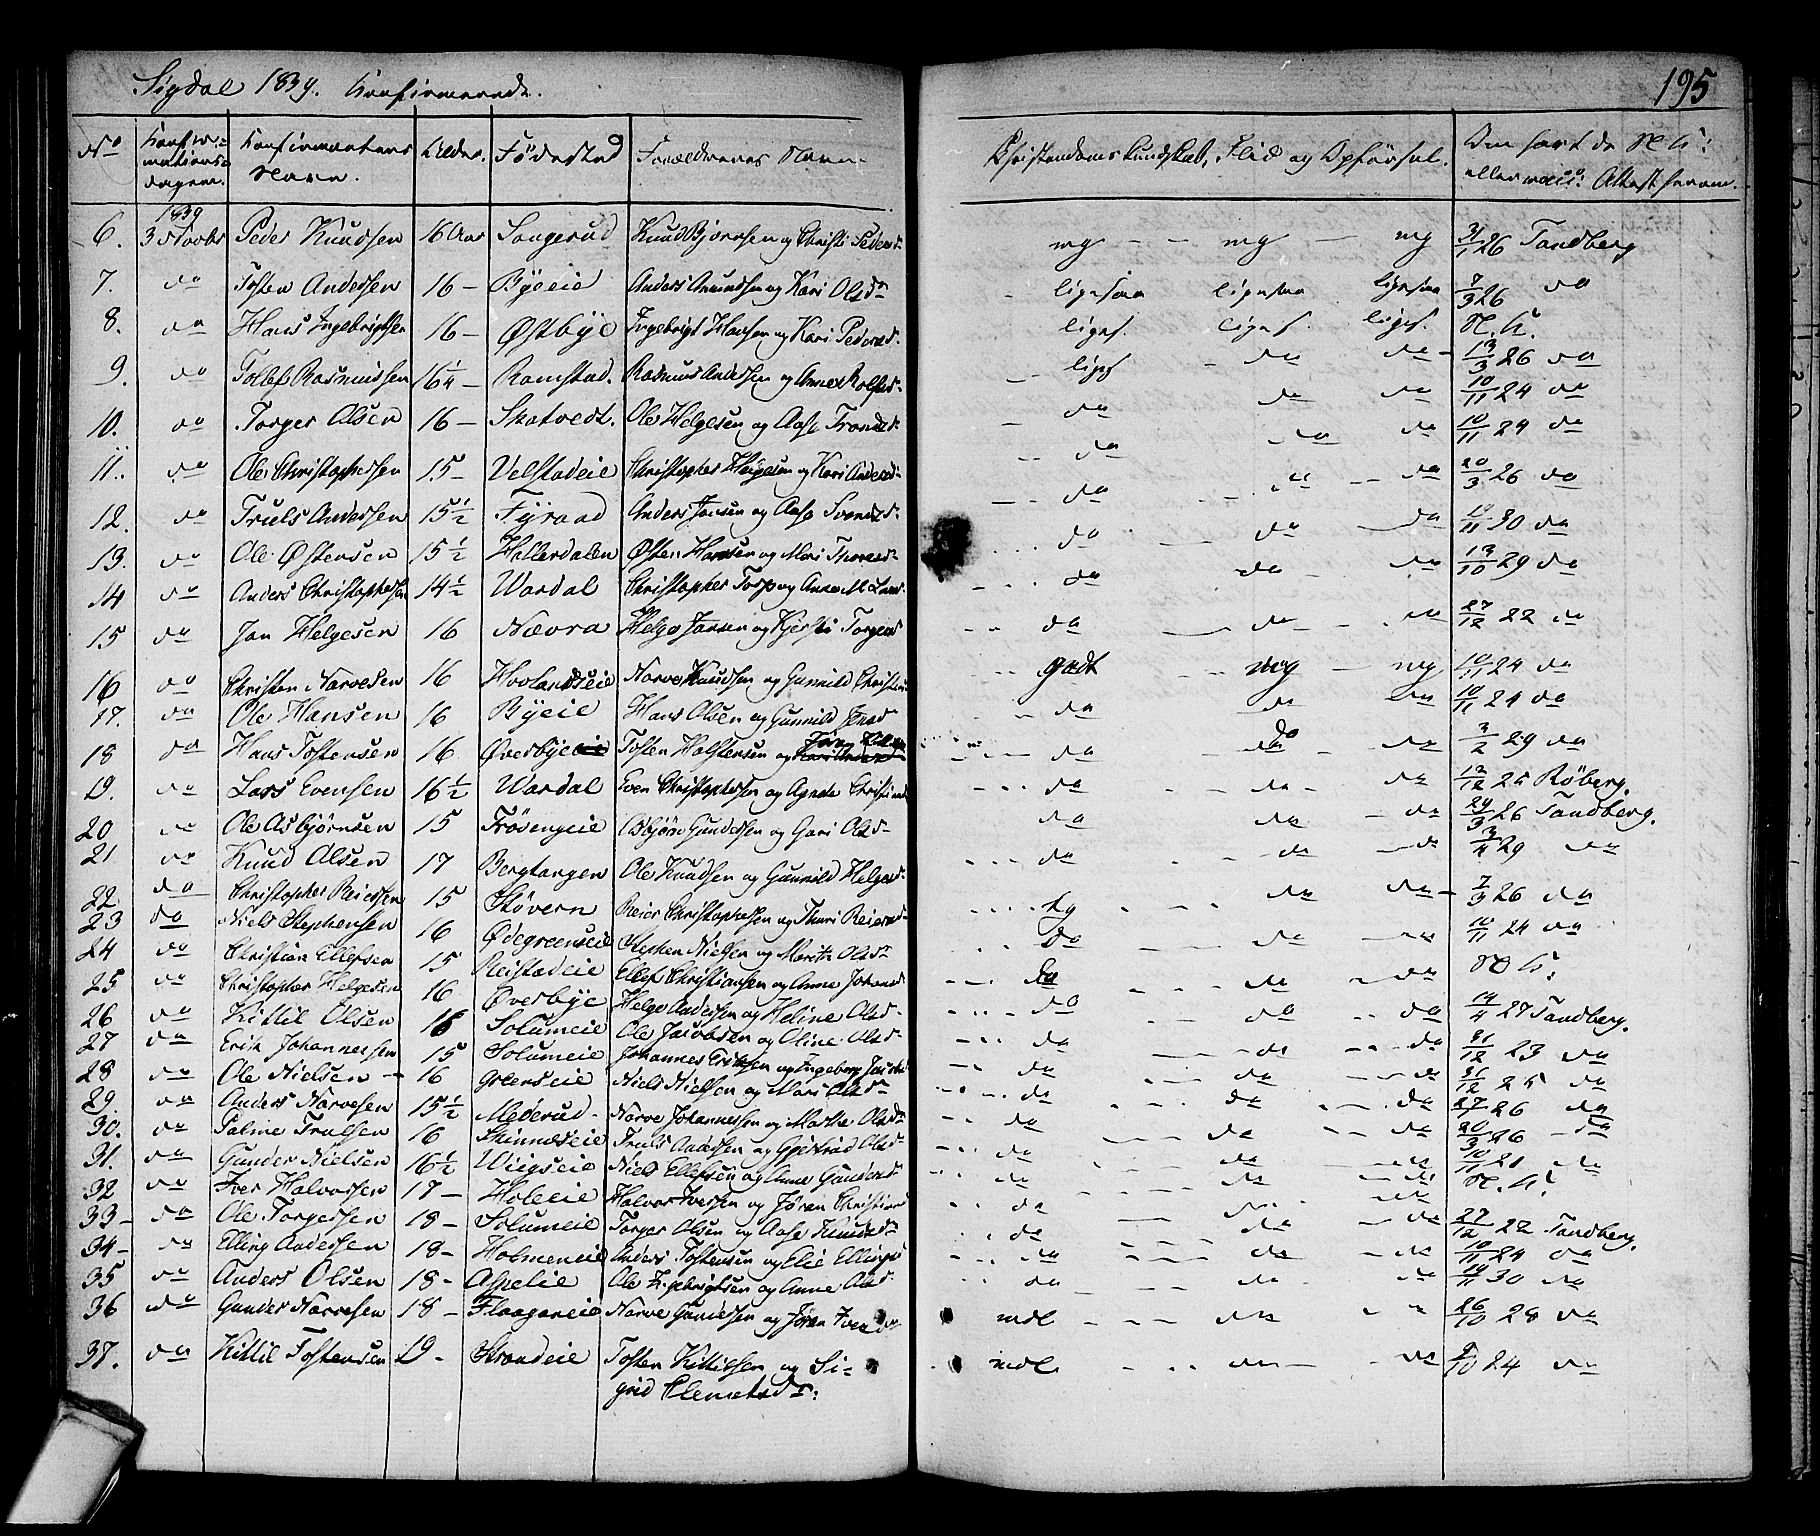 Sigdal 1839. Konfirmerede.
195
No Konfirmationsdagen. Konfirmantens Navn. Alder. Fødested Forældrenes Navn Christendoms Kundskab, Flid og Opførsel. Attest herom.
1839
6. Peder Knudsen 16 Aar Knud Bjørnsen og Christi Pedersd. mg — — mg — mg 26 Tandberg
7. do Tosten Andersen 16 — Byeeie Anders Amundsen og Kari Olsdr — ligesaa ligesaa ligesaa 7/3 26 do
8. do Hans Ingebrigtsen 16 — Østbye Ingebrigt Hansen og Kari Pedersd. liges. liges. liges. N. K.
9. do Tollef Rasmussen 16 1/4 — Ramstad. Rasmus Andersen og Anne Rolfsd. — do do — 13/3 26 do
10. do Torger Olsen 16 — Skatvedt. Ole Helgesen og Aase Trondsd. — do do do 10/11 24 do
11. do Ole Christophersen 15 — Velstadeie Christopher Helgesen og Kari Andersd. do do do 10/11 24 do
12. do Truels Andersen 15 1/2 Fyraad Anders Jonsen og Aase Svendsd. do do do 20/3 26 do
13. do Ole Østensen 15 1/2 Hallerdalen Østen Hansen og Mari do do do 30 do
14 do Anders Christophersen 14 1/2 Wardal Christopher Torp og Anne M. do do do 13/10 29 do
15 do Jon Helgesen 16 Nævra Helge Jonsen og Kjersti Torgersd do do do 27/12 22 do
16 do Christen Narvesen 16 Hovlandseie Narve Knudsen og Gunnild godt mg — mg 10/11 24 do
17. do Ole Hansen 16 Byeie Hans Olsen og Gunnild do do do 10/11 24 do
18 do Hans Tostensen 16 Øverbye Tosten Halstensen og Jøran do do do 3/2 29 do
19. do Lars Evensen 16 1/2 Wardal Even Christophersen og Agnete do do do 12/12 25 Röberg.
20 do Ole Asbjørnsen 15 Frøsengeie Asbjørn Gundersen og Gari Olsd do do do 29/3 26 Tandberg.
21 do Knud Olsen 17 Bergtangen Ole Knudsen og Gunnild Helgesd. do do do 29 do
22 do Christopher Reiersen 15 Støvern Reier Christophersen og Thuri Reiersd tg do do 7/3 26 do
23 do Niels Stephensen 16 Ødegreenseie Stephen Nielsen og Marit Olsd do do do 10/11 24 do
24 do Christian Ellefsen 15 Reistadeie Ellef Christiansen og Anne do do do N. K.
25 do Christopher Helgesen 16 Øverbye Helge Andersen og Heline Olsd. do do do 14/4 27 Tandberg.
26 do Kittil Olsen 16 Solumeie Ole Jacobsen og Oline Olsd do do do 31/12 23 do
27 do Erik Johannessen 15 Solumeie Johannes Eriksen og Ingeborg do do do 25 do
28 do Ole Nielsen 16 Greenseie Niels Nielsen og Mari Olsd do do do 26 do
29. do Anders Narvesen 15 1/2 Mederud. Narve Johannessen og Marthe Olsd do do do 20/3 26 do
30. do Palme Trulsen 16 Skinneseie Truls Andersen og Gjertrud Olsd do do do 21 do
31. do Gunder Nielsen 16 1/2 Wiigseie Niels Ellefsen og Anne Gundersd do do N. K.
32 do Iver Halvorsen 17 — Holeeie Halvor Iversen og Jøran do do do 27/12 22 Tandberg.
33 — do Ole Torgersen 18 — Solumeie Torger Olsen og Aase Knudsd do do do 10/11 24 do
34 — do Elling Andersen 18 — Holmeneie Anders Tostensen og Elie do do do 30 do
35 do Anders Olsen 18 — Ole Ingebrigtsen og Anne Olsd do do do
36 do Gunder Narvesen 18 — Flaaganeie Narve Gundersen og Jøran mdl — do 26/10 28 do
37. do Kittil Tostensen 19 — Strandeie Tosten Kittilsen og Si- mdl do — do 24 do
grid Clemetsdr: